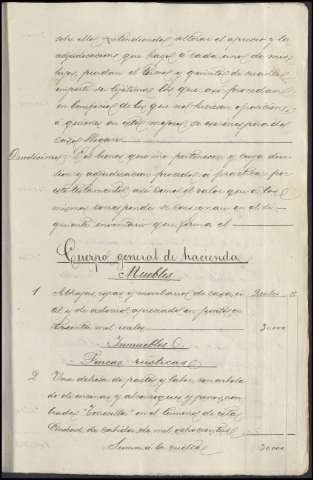 sobre ellos pretendiendo alterar el aprecio y las
adjudicaciones que hago á cada uno de mis
hijos, pierdan el tercio y quinto de cuanto
importe su legítima los que así procedan
en beneficio de los que no hicieran oposición
á quienes en este mejoro
caso
Duodécimo: Los bienes que me pertenecen y cuya divi-
sion y adjudicacion procedo á practicar por
este testamento, así como el valor que á los
mismos corresponde se consignan en el si-
guiente inventario que forma el
Cuerpo general de hacienda
Muebles
1 Alhajas, ropas y mobiliario de casa, útil
y de adorno, apreciado en junto en
treinta mil reales 30000
Inmuebles
Fincas rústicas
2 Una dehesa de pasto y labor con arbola-
do de encinas y alcornoques y parte nom-
brada en el término de esta
Ciudad de cabida de mil ochocientas
Suma á la vuelta 30000